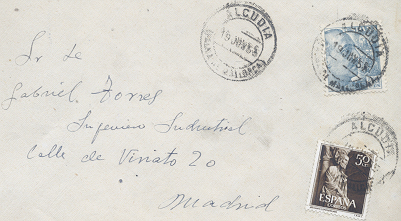 ALCUDIA
(MALLORCA)
Sr de
Gabriel Torres
Ingeniero Industrial
Calle de Viriato 20
Madrid
ALCUDIA
ALCUDIA
50
ESPAÑA
CORREOS